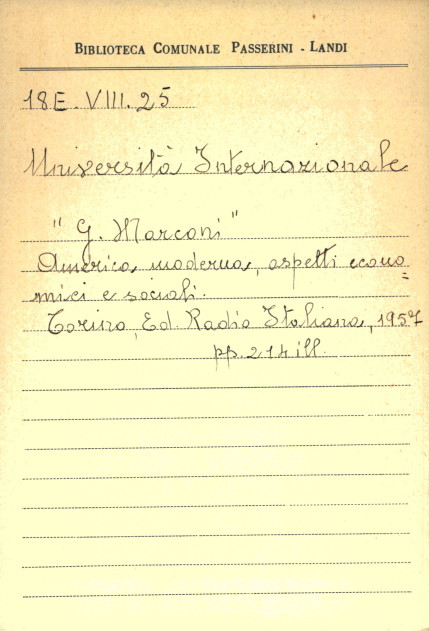 BIBLIOTECA COMUNALE PASSERINI - LANDI
18E. VIII. 25
Università Internazionale
"G. Marconi"
America moderna, aspetti econo=
mici e sociali.
Torino, Ed. Radio Italiana, 1957
pp. 214 ill.